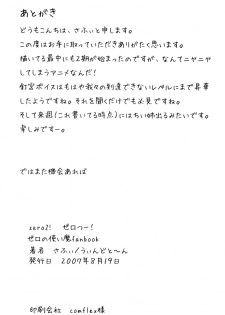 あとがき
どうもこんちは、さふぃと申します。
この度はお手に取っていただきありがたく思います。
描いてる最中にも2期が始まったのですが、なんてニャニャ
してしまうアニメなんだ!
釘宮ボイスはもはや我々の到達できないレベルにまで昇華
したようですね。それを聞くだけでも必見ですね。
そして来週(これ書いてる時点)にはちい姉出るみたいです。
楽しみですー。
ではまた機会あれば
zero2! ゼロつー!
ゼロの使い魔fanbook
著者 さふぃ/うぃんどと〜ん
発行日 2007年8月19日
印刷会社 comflex様